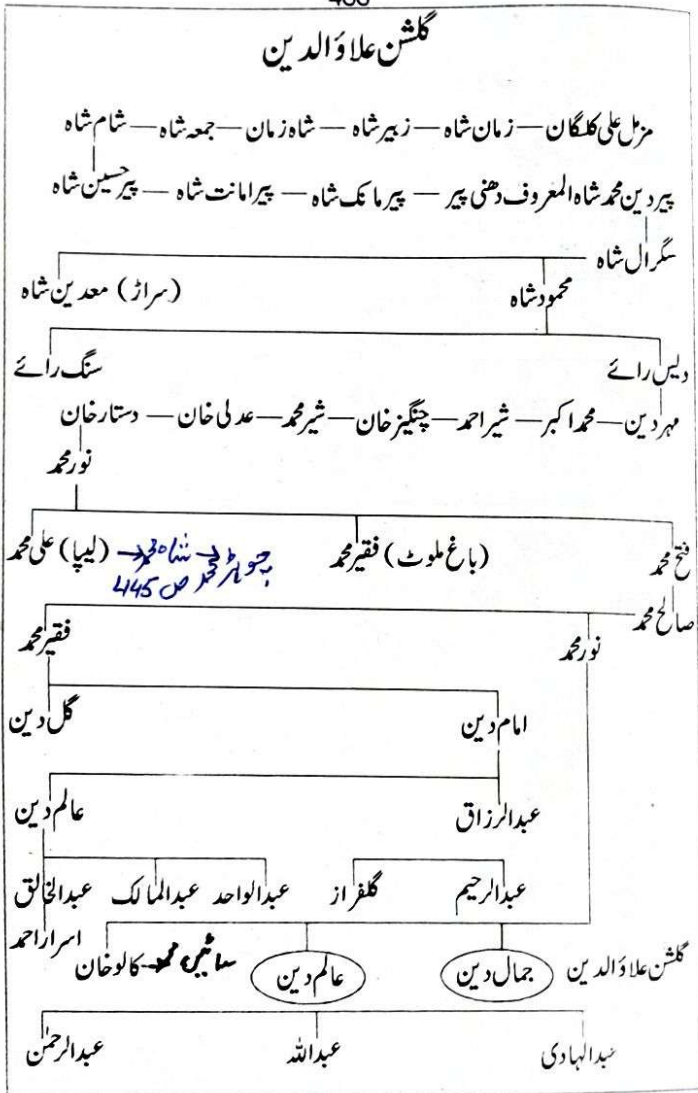 گلشن علاؤالدین
مزمل علی کلگان — زمان شاہ — زبیر شاہ — شاہ زمان — جمعہ شاہ — شام شاہ
پیر دین محمد شاہ المعروف دھنی پیر — پیر مانک شاہ — پیر امانت شاہ — پیر حسین شاہ
سگرال شاہ
محمود شاہ (سراڑ) معدین شاہ
دیس رائے سنگ رائے
مہر دین — محمد اکبر — شیر احمد — چنگیز خان — شیر محمد — عدلی خان — دستار خان
نور محمد
فتح محمد (باغ ملوٹ) فقیر محمد (لیپا) علی محمد
شاہ محمد ص 445
صالح محمد نور محمد فقیر محمد
امام دین گل دین
عبدالرزاق عالم دین
عبدالرحیم گلفراز عبدالواحد عبدالمالک عبدالخالق
اسرار احمد
گلشن علاؤالدین جمال دین عالم دین کالو خان
عبدالہادی عبداللہ عبدالرحمٰن